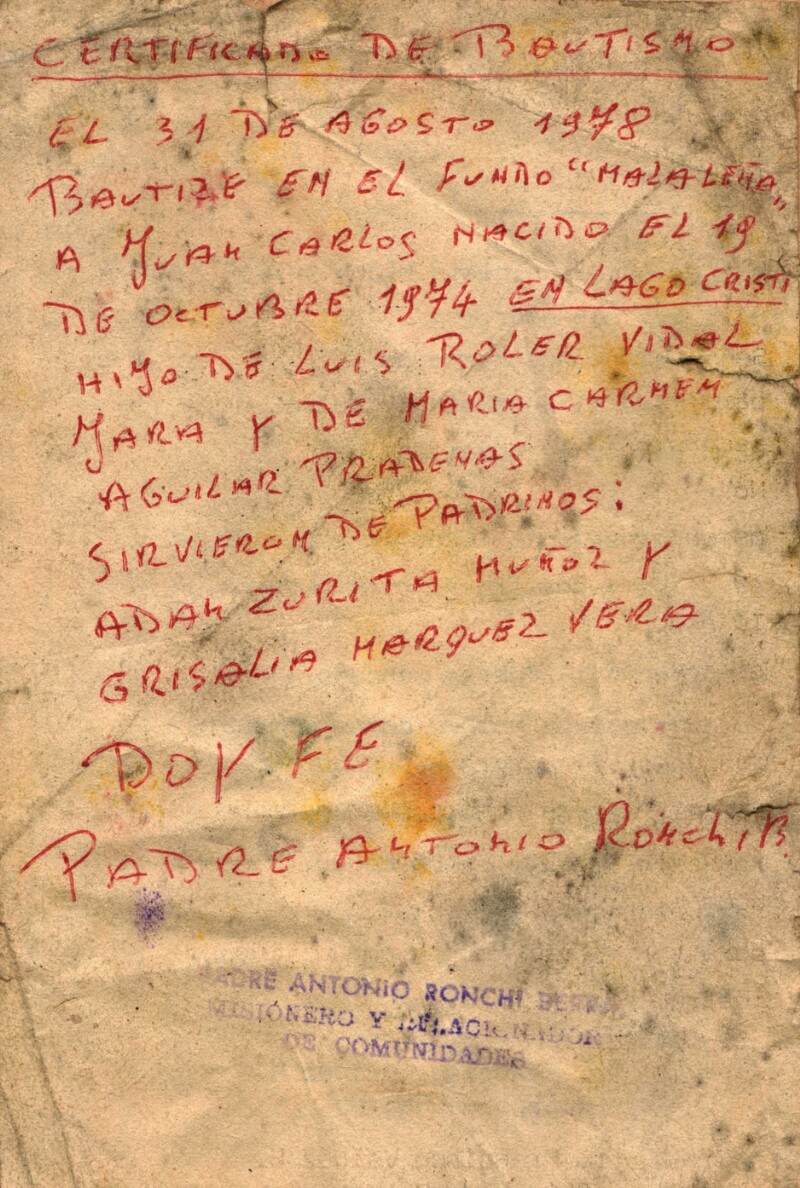 CERTIFICADO DE BAUTISMO
EL 31 DE AGOSTO 1978
BAUTIZE EN EL FUNDO "MALALEÑA"
A JUAN CARLOS NACIDO EL 19
DE OCTUBRE 1974 EN LAGO CRISTI
HIJO DE LUIS ROLER VIDAL
JARA Y DE MARIA CARMEN
AGUILAR PRADENAS
SIRVIERON DE PADRINOS:
ADAN ZURITA MUÑOZ Y
GRISALIA MARQUEZ VERA
DOY FE
PADRE ANTONIO RONCHI B.
PADRE ANTONIO RONCHI
MISIONERO Y RELACIONADOR
DE COMUNIDADES